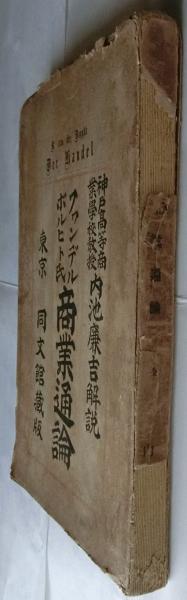 Der Handel
神戸高等商業學校敎授 内池廉吉解說
ファンデルボルヒト氏 商業通論
東京 同文館藏版